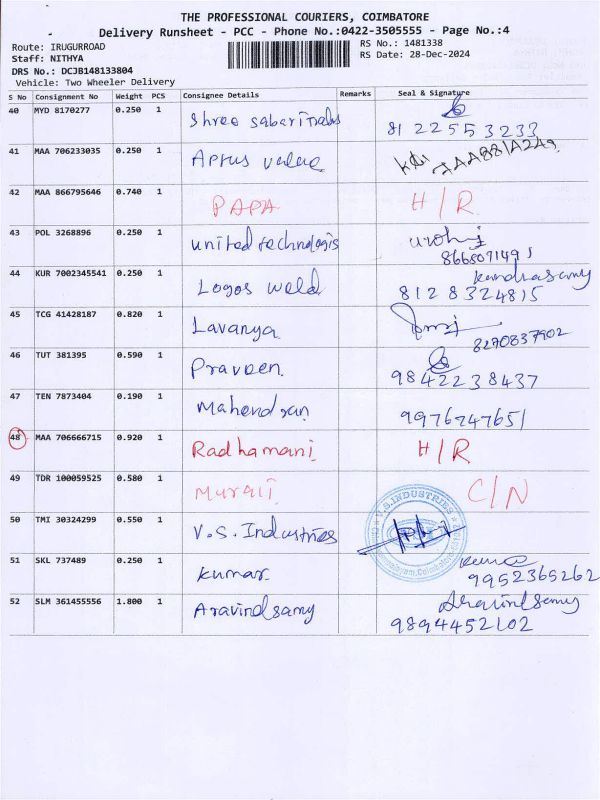 THE PROFESSIONAL COURIERS, COIMBATORE
Delivery Runsheet - PCC - Phone No.:0422-3505555 - Page No.:4
Route: IRUGURROAD
RS No.: 1481338
Staff: NITHYA
RS Date: 28-Dec-2024
DRS No.: DCJB148133804
Vehicle: Two Wheeler Delivery
S No Consignment No Weight PCS Consignee Details Remarks Seal & Signature
40 MYD 8170277 0.250 1 Shree sabarinads 81 22553233
41 MAA 706233035 0.250 1 Aptus value
42 MAA 866795646 0.740 1 PAPA H/R
43 POL 3268896 0.250 1 united technologis
8668071491
44 KUR 7002345541 0.250 1 Logos weld Kandhasamy
8128324815
45 TCG 41428187 0.820 1 Lavanya
8270837902
46 TUT 381395 0.590 1 Praveen. 9842238437
47 TEN 7873404 0.190 1 Mahendran 9976747651
48 MAA 706666715 0.920 1 Radhamani H/R
49 TDR 100059525 0.580 1 Murali C/N
50 TMI 30324299 0.550 1 V.S. Industries V.S.INDUSTRIES
51 SKL 737489 0.250 1 kumar. 9952365262
52 SLM 361455556 1.800 1 Aravindsamy Aravindsamy
9894452102